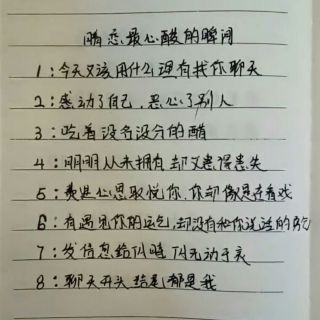 暗恋最心酸的瞬间
1：今天又该用什么理有找你聊天
2：感动了自己，恶心了别人
3：吃着没名没分的醋
4：明明从未拥有却又患得患失
5：费尽心思取悦你，你却像是在看戏
6：有遇见你的运气，却没有和你说话的勇气
7：发信息给你时你无动于衷
8：聊天开头结尾都是我